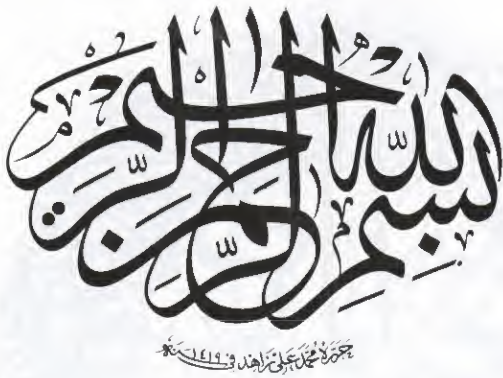 بسم الله الرحمن الرحيم
حرره محمد علي زاهد في سنة ١٤١٩